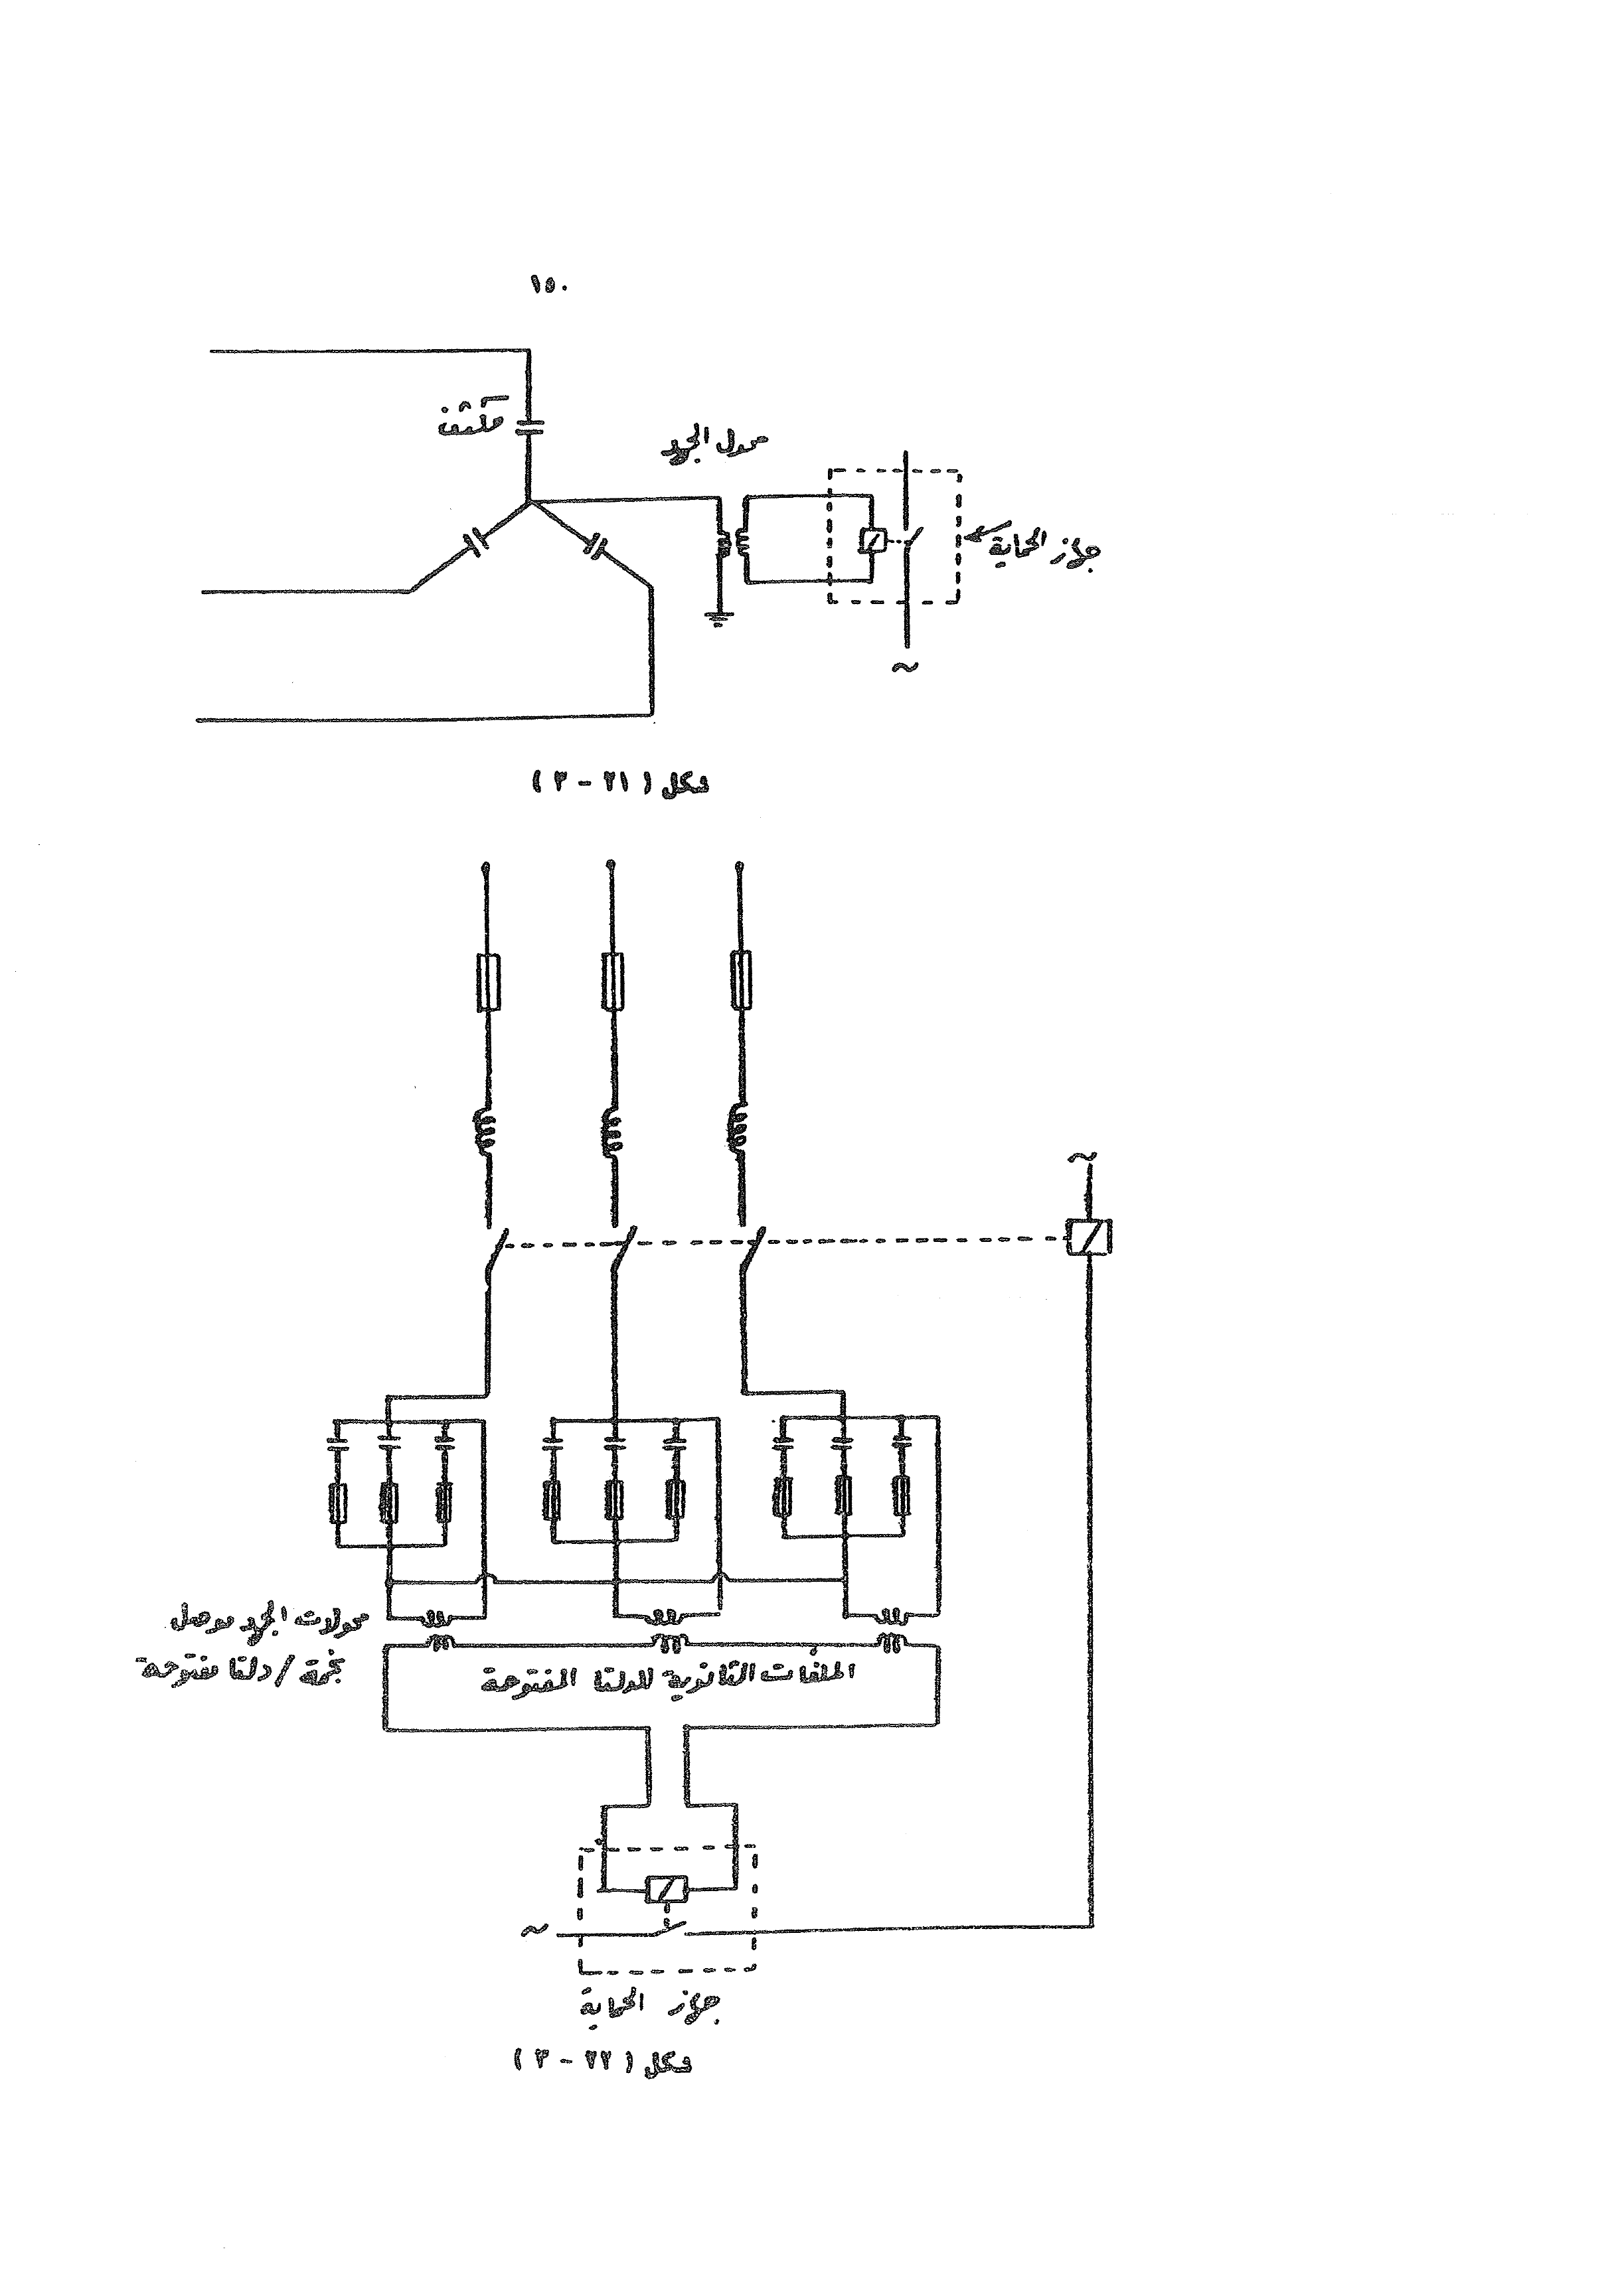 ١٥٠
مكثف
محول الجهد
جهاز الحماية
~
شكل ( ٢١ - ٣ )
~
محولات الجهد موصل
نجمة / دلتا مفتوحة
الملفات الثانوية للدلتا المفتوحة
~
جهاز الحماية
شكل ( ٢٢ - ٣ )